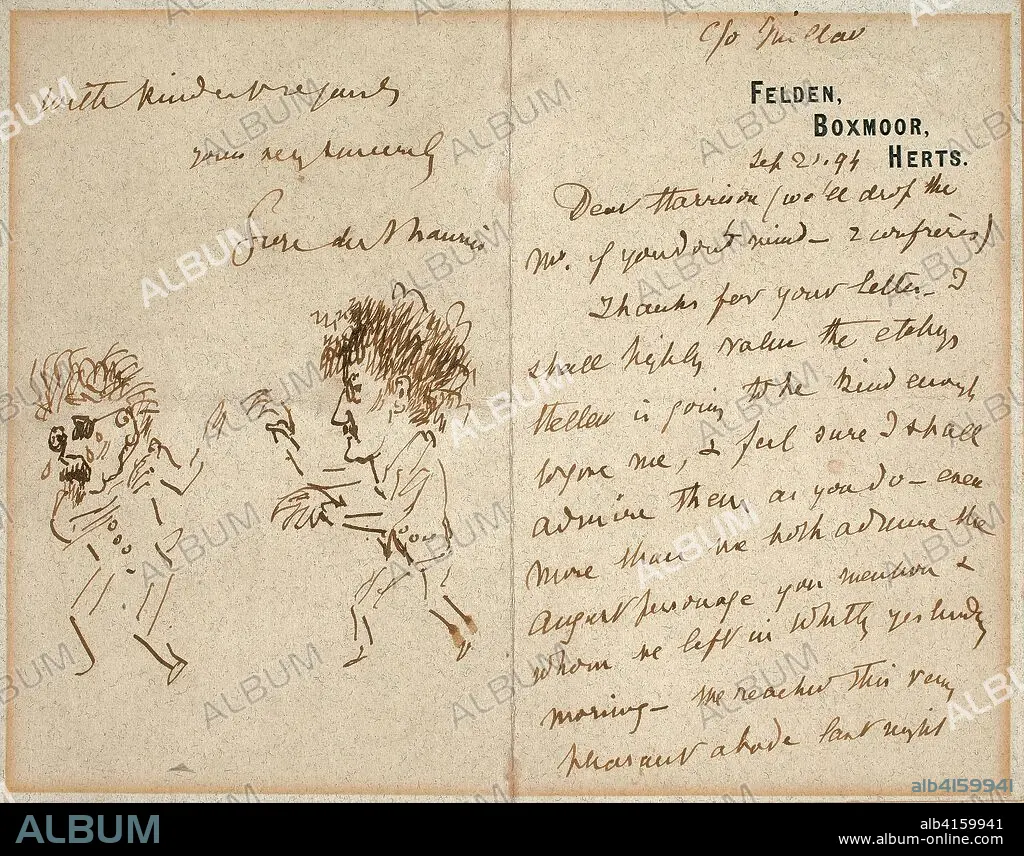 c/o
FELDEN,
BOXMOOR,
HERTS.
Sep 21. 94
Dear Harrison (we'll drop the
Mr. if you dont mind – 2 confrères)
Thanks for your letter – I
shall highly value the etchgs
Helleu is going to be kind enough
to give me, & feel sure I shall
admire them, as you do – even
more than we both admire the
august personage you mention &
whom we left in Whitby yesterday
morning – We reached this very
pleasant abode last night
With kindest regards
yours very sincerely
du Maurier
ALBUM
alb4159941
ALBUM
alb4159941
www.album-online.com